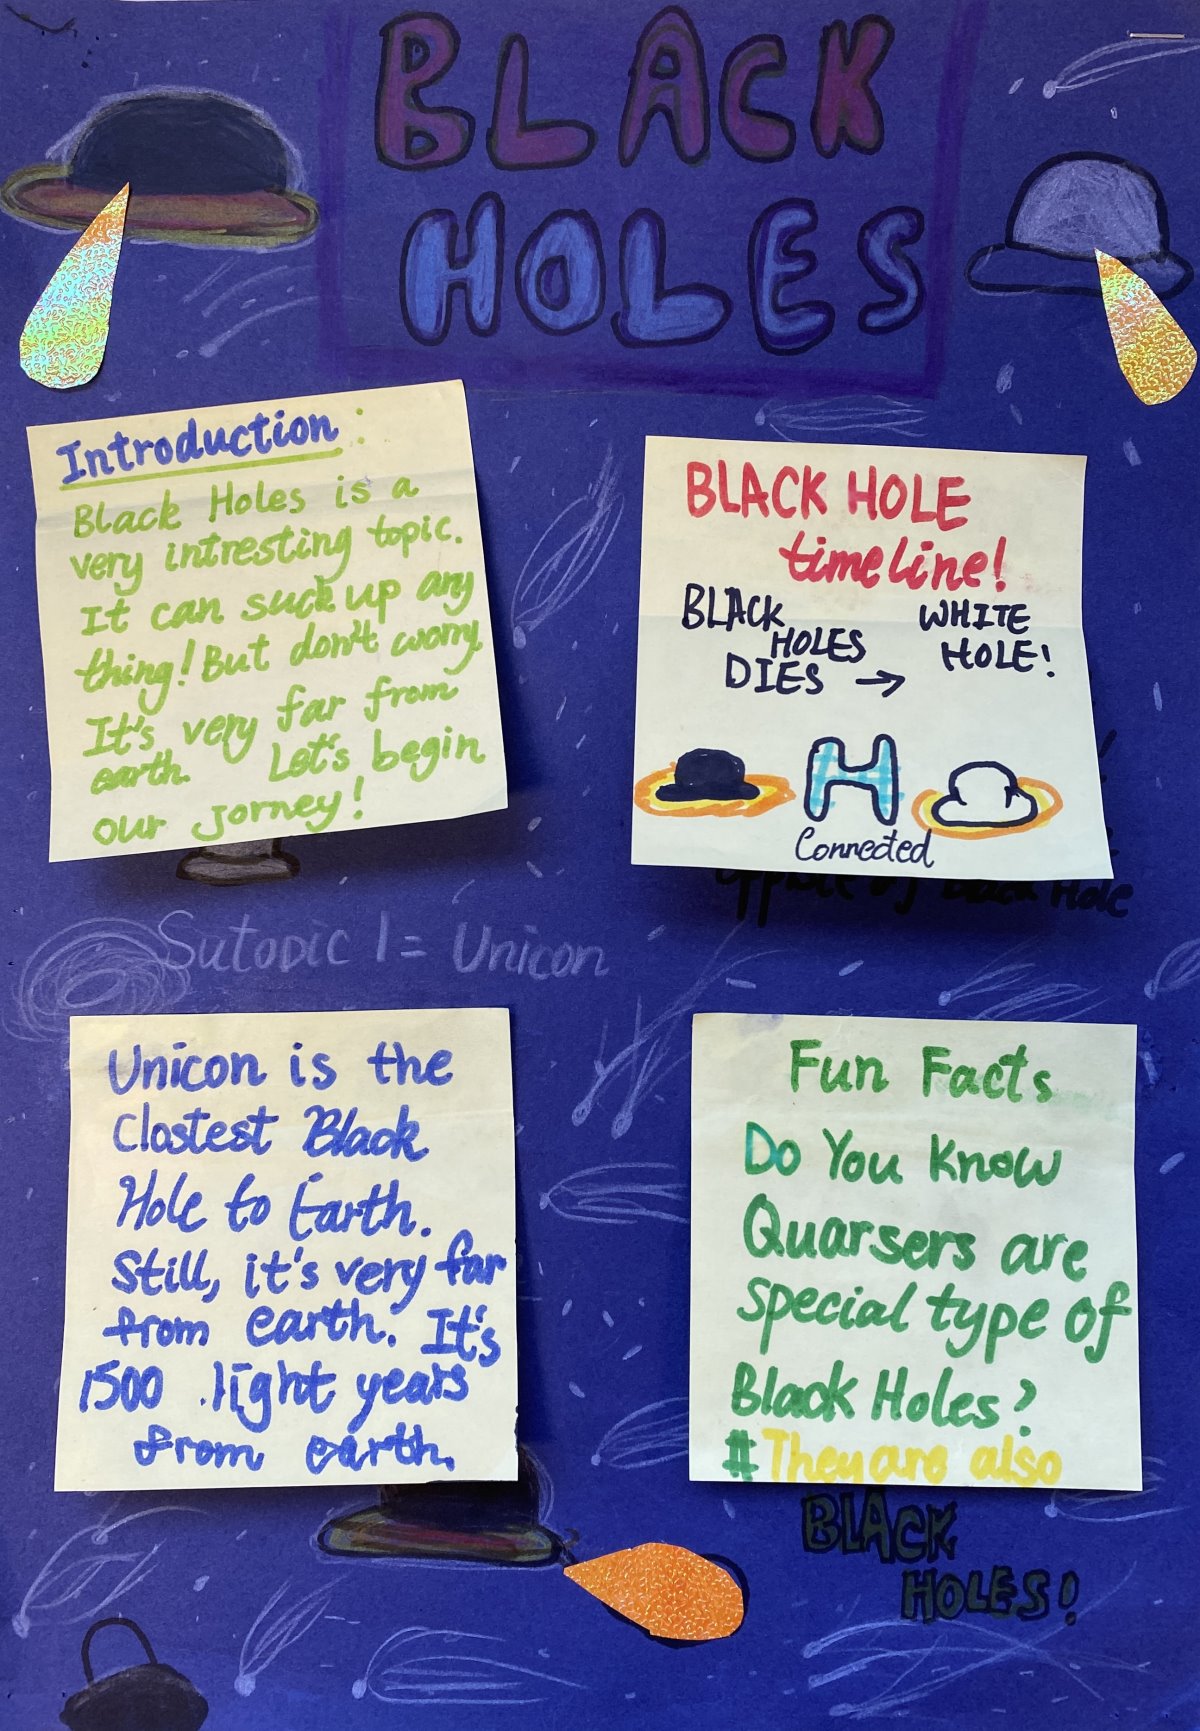 BLACK
HOLES
Introduction:
Black Holes is a
very intresting topic.
It can suck up any
thing! But don't worry
It's very far from
earth. Let's begin
our jorney!
BLACK HOLE
timeline!
BLACK WHITE
HOLES HOLE!
DIES →
H
Connected
of Black Hole
Sutopic 1 = Unicon
Unicon is the
Clostest Black
Hole to Earth.
Still, it's very far
from earth. It's
1500 light years
from earth.
Fun Facts
Do You Know
Quarsers are
special type of
Black Holes?
#They are also
BLACK
HOLES!